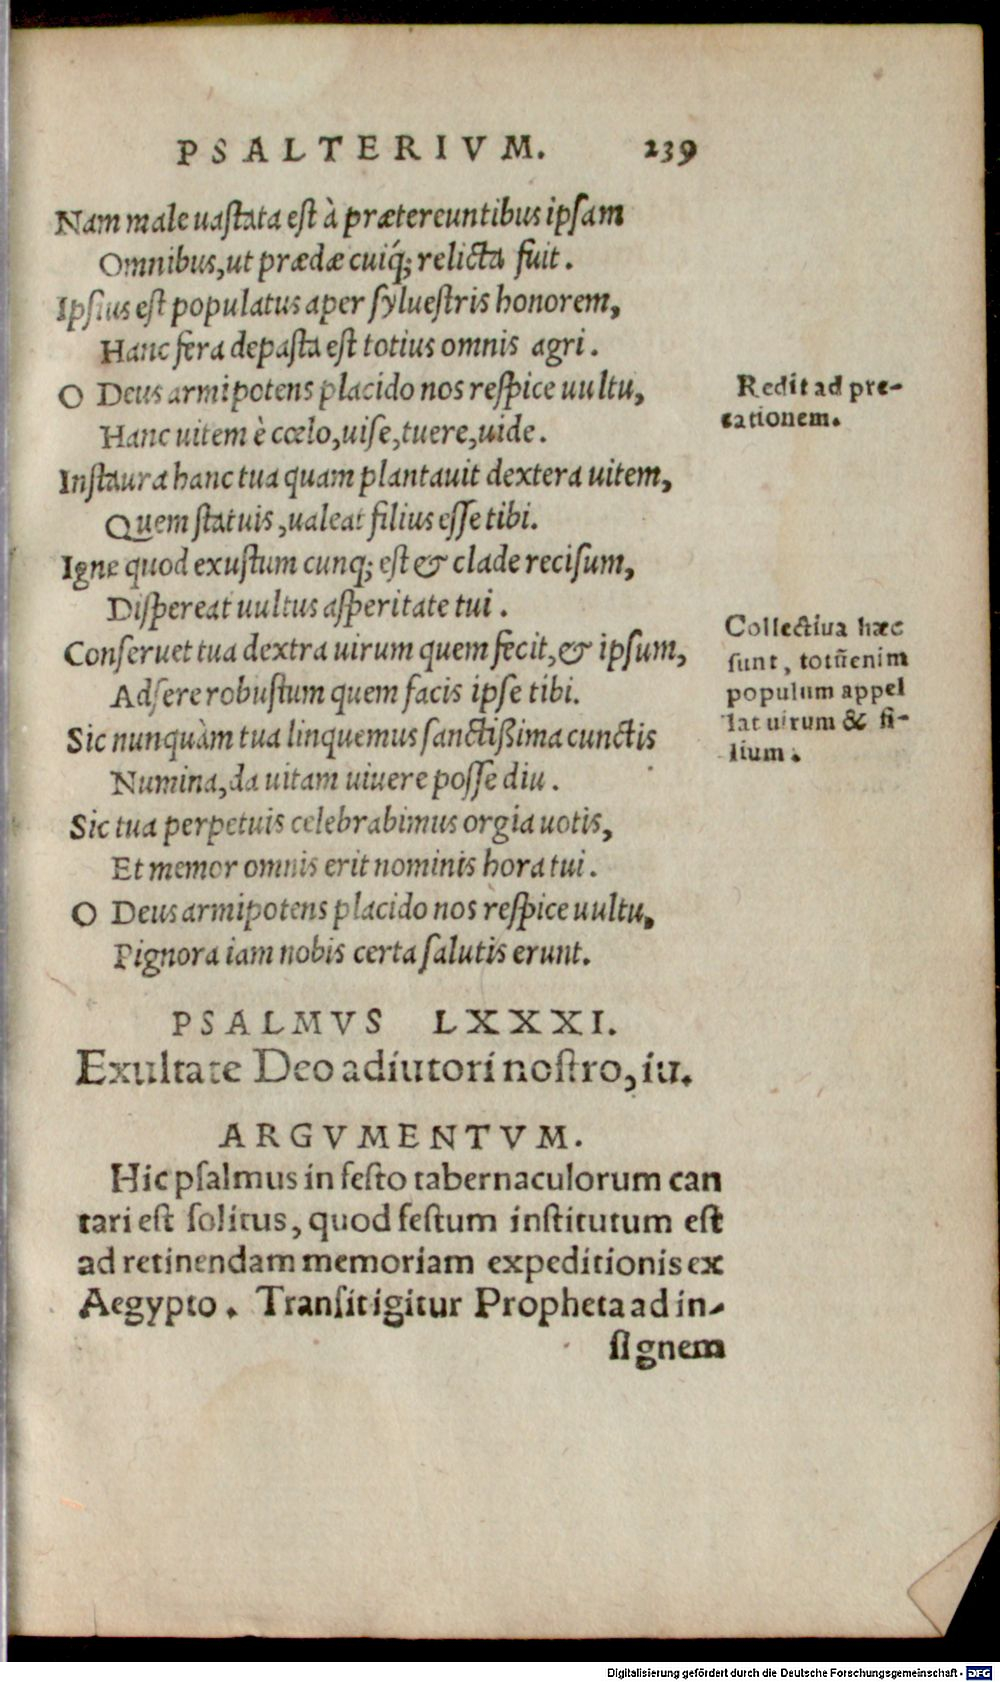 PSALTERIVM. 239
Nam male uastata est à prætereuntibus ipsam
Omnibus, ut prædæ cuiq́; relicta fuit.
Ipsius est populatus aper syluestris honorem,
Hanc fera depasta est totius omnis agri.
O Deus armipotens placido nos respice uultu,
Hanc uitem è cœlo, uise, tuere, uide.
Redit ad pre-
cationem.
Instaura hanc tua quam plantauit dextera uitem,
Quem statuis, ualeat filius esse tibi.
Igne quod exustum cunq; est & clade recisum,
Dispereat uultus asperitate tui.
Conseruet tua dextra uirum quem fecit, & ipsum,
Adsere robustum quem facis ipse tibi.
Collectiua hæc
sunt, totũ enim
populum appel
lat uirum & fi-
lium.
Sic nunquàm tua linquemus sanctißima cunctis
Numina, da uitam uiuere posse diu.
Sic tua perpetuis celebrabimus orgia uotis,
Et memor omnis erit nominis hora tui.
O Deus armipotens placido nos respice uultu,
Pignora iam nobis certa salutis erunt.
PSALMVS LXXXI.
Exultate Deo adiutori nostro, iu.
ARGVMENTVM.
Hic psalmus in festo tabernaculorum can
tari est solitus, quod festum institutum est
ad retinendam memoriam expeditionis ex
Aegypto. Transit igitur Propheta ad in-
signem
Digitalisierung gefördert durch die Deutsche Forschungsgemeinschaft - DFG